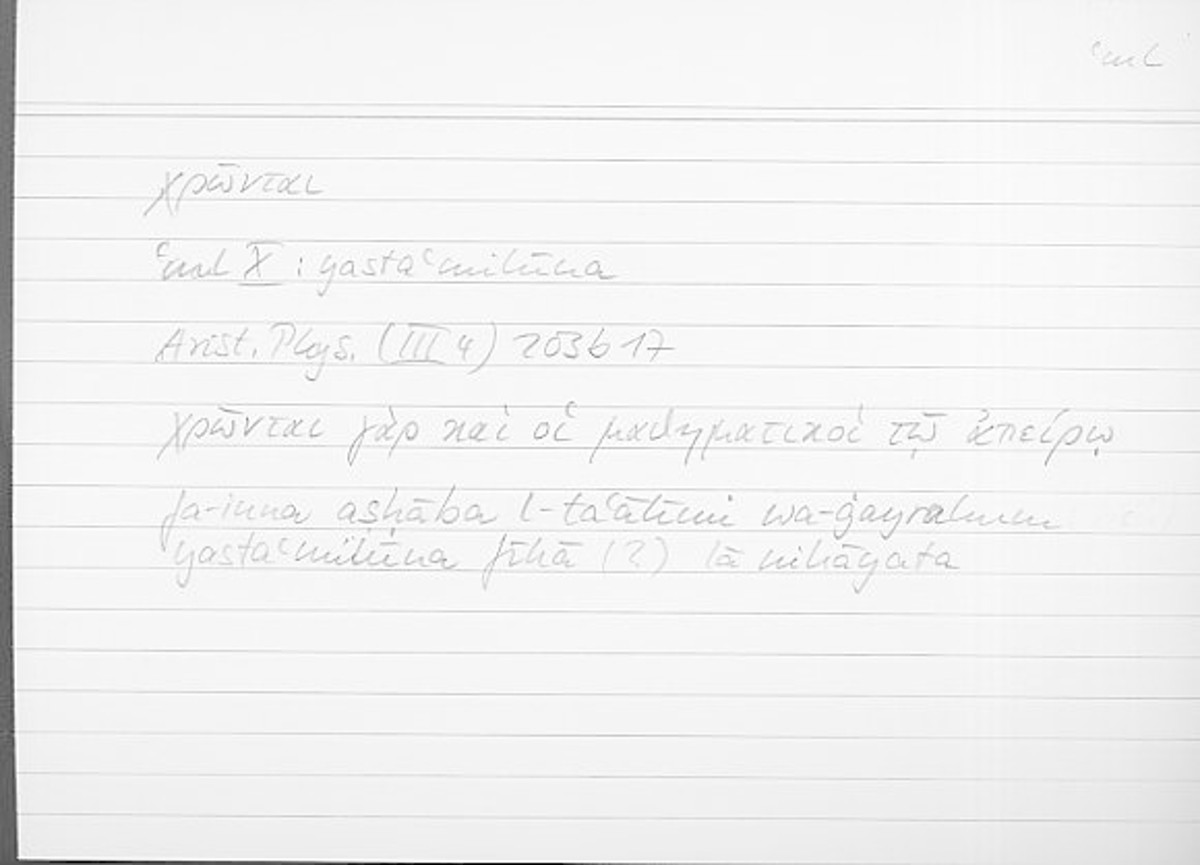 ʿml
χρῶνται
ʿml X : yastaʿmilūna
Arist. Phys. (III 4) 203b17
χρῶνται γὰρ καὶ οἱ μαθηματικοὶ τῷ ἀπείρῳ
fa-inna aṣḥāba l-taʿālīmi wa-ġayrahum
yastaʿmilūna fīhā (?) lā nihāyata